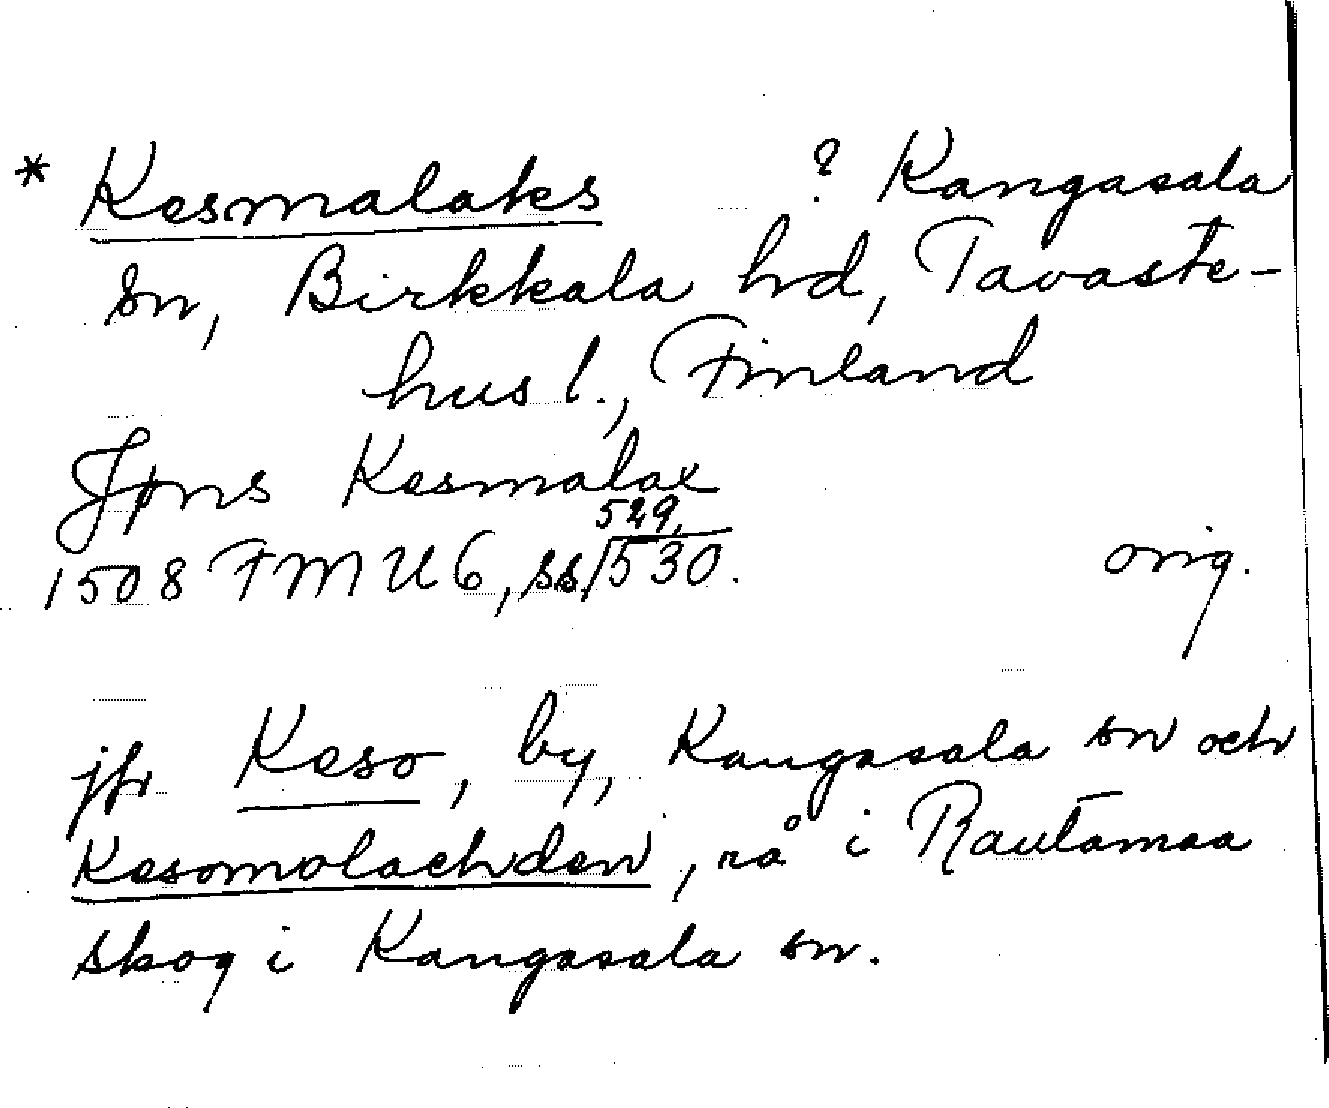 * Kesmalaks ? Kangasala
sn, Birkkala hd, Tavaste-
hus l., Finland
Jøns Kesmalax
529,
1508 FMU 6, ss/530. orig.
jfr Keso, by, Kangasala sn och
Kesomolachden, rå i Rautamaa
skog i Kangasala sn.